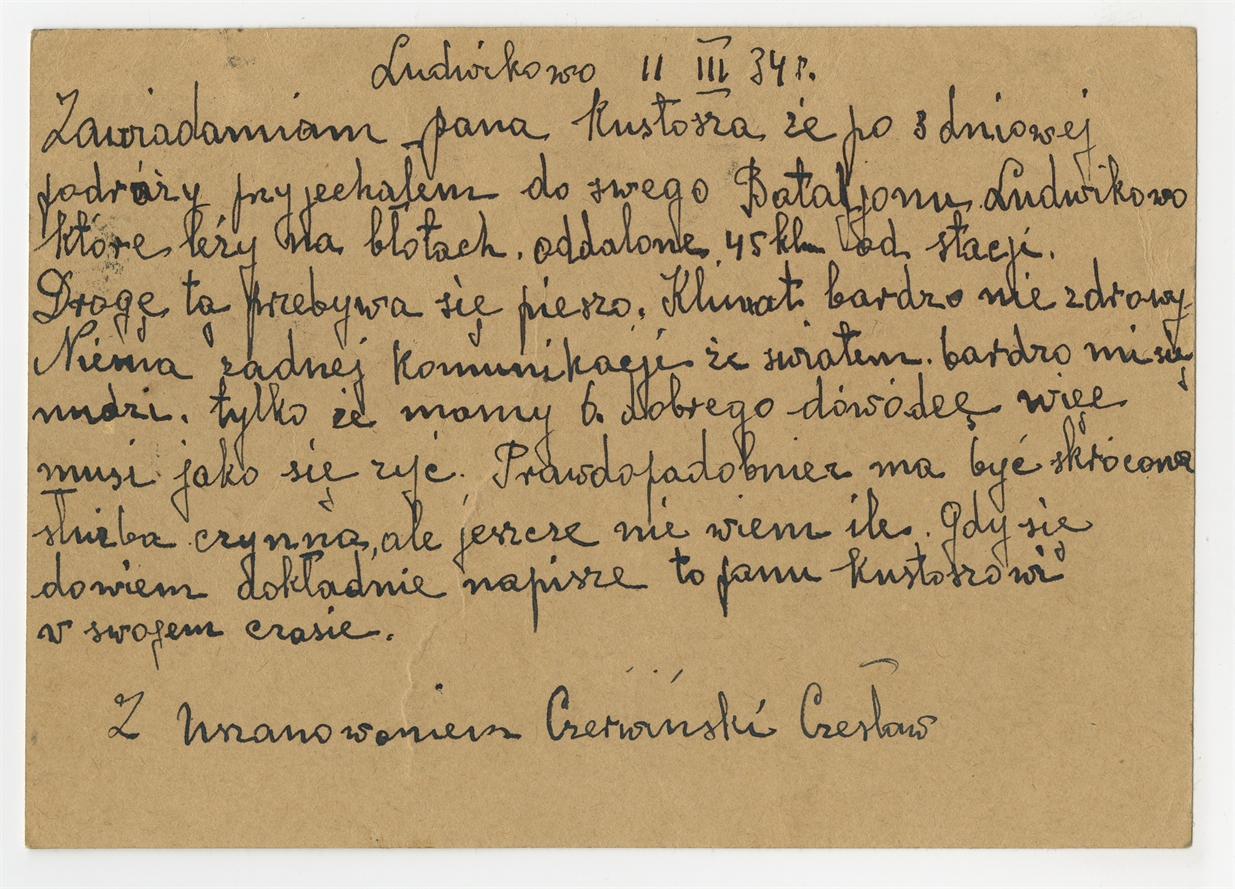 Ludwikowo 11 III 34 r.
Zawiadamiam pana Kustosza że po 3 dniowej
podróży pryjechałem do swego Bataljonu Ludwikowo
które leży na błotach. oddalone 45 klm od stacji.
Drogę tą przebywa się pieszo. Klimat bardzo nie zdrowy
Niema żadnej komunikacji ze swiatem. bardzo mi się
nudzi. tylko że mamy b. dobrego dówódcę więc
musi jako się zyć. Prawdopadobniez ma być skrócona
słuzba czynna, ale jeszcze nie wiem ile. Gdy sie
dowiem dokładnie napisze to panu kustoszowi
w swojem czasie.
Z Uszanowaniem Czerwiński Czesław